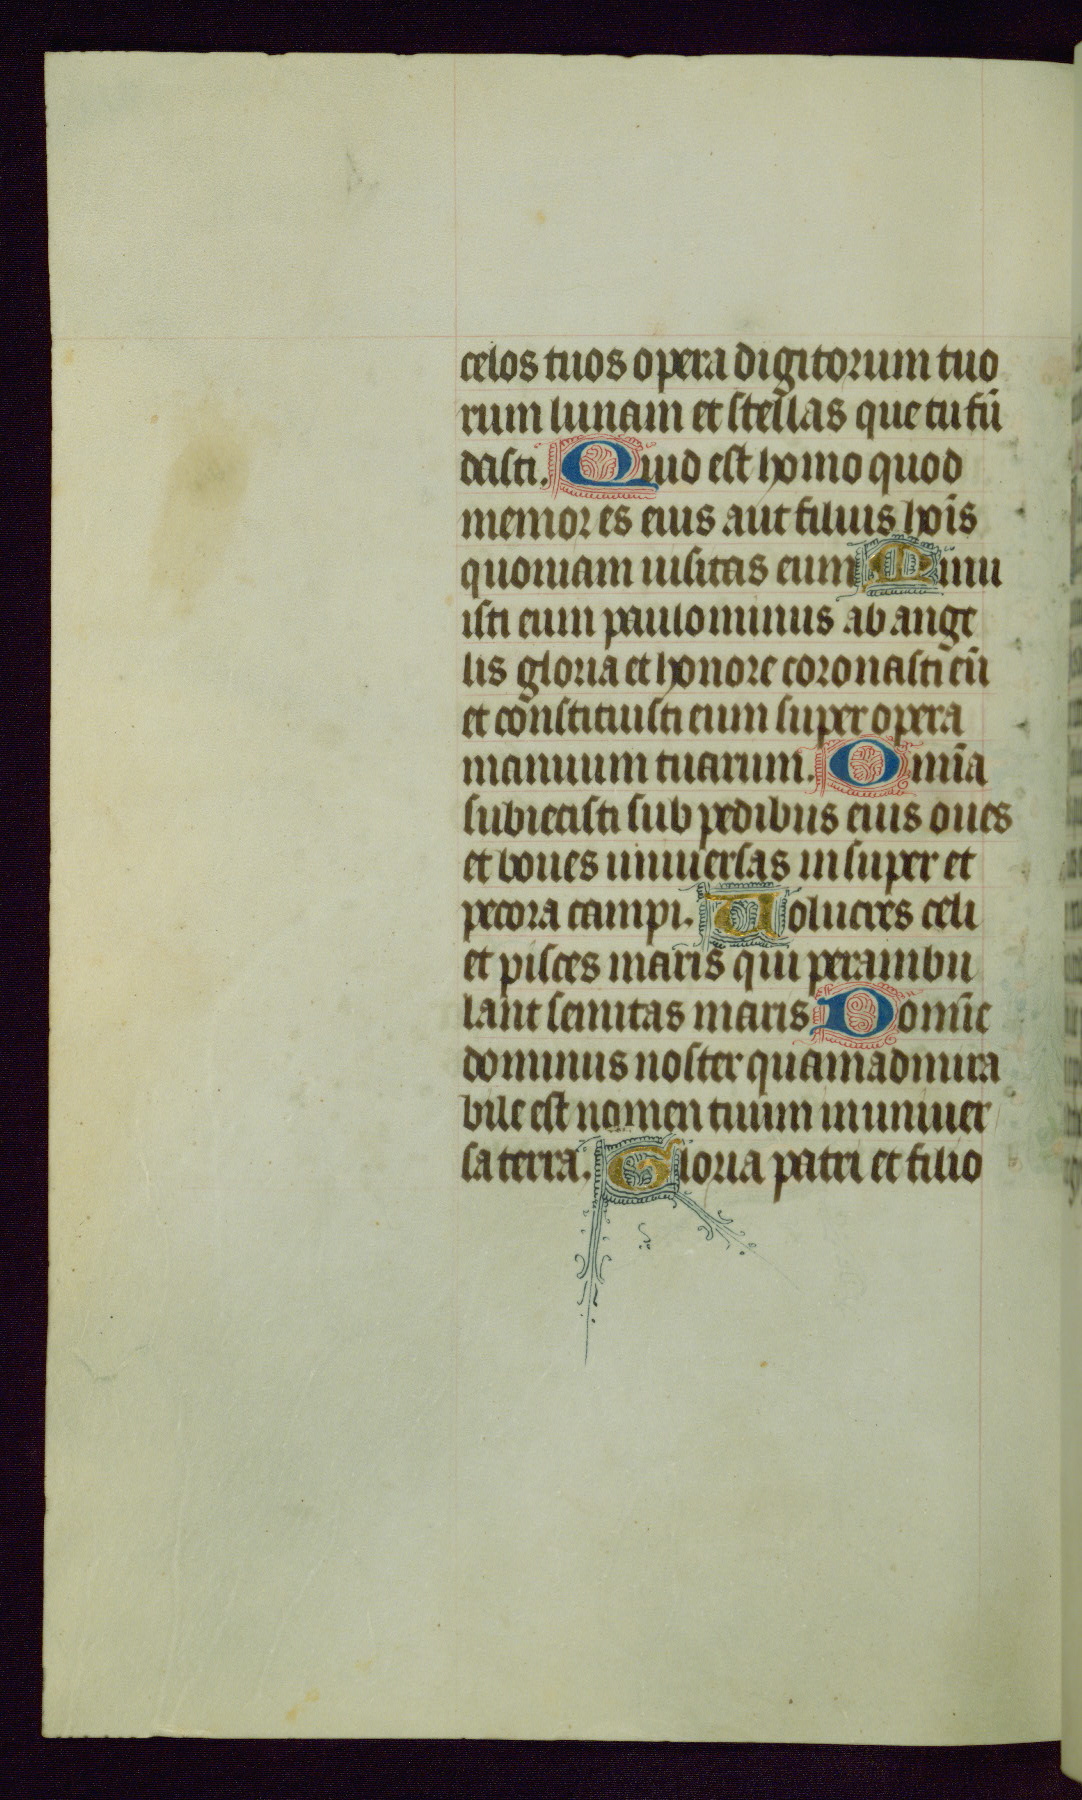 celos tuos opera digitorum tuo
rum lunam et stellas que tu fū
dasti. Quid est homo quod
memor es eius aut filius hoīs
quoniam uisitas eum Minu
isti eum paulominus ab ange
lis gloria et honore coronasti eū
et constituisti eum super opera
manuum tuarum. Omīa
subiecisti sub pedibus eius oues
et boues uniuersas insuper et
pecora campi. Uolucres celi
et pisces maris qui perambu
lant semitas maris Domīe
dominus noster quamadmira
bile est nomen tuum inuniuer
sa terra. Gloria patri et filio